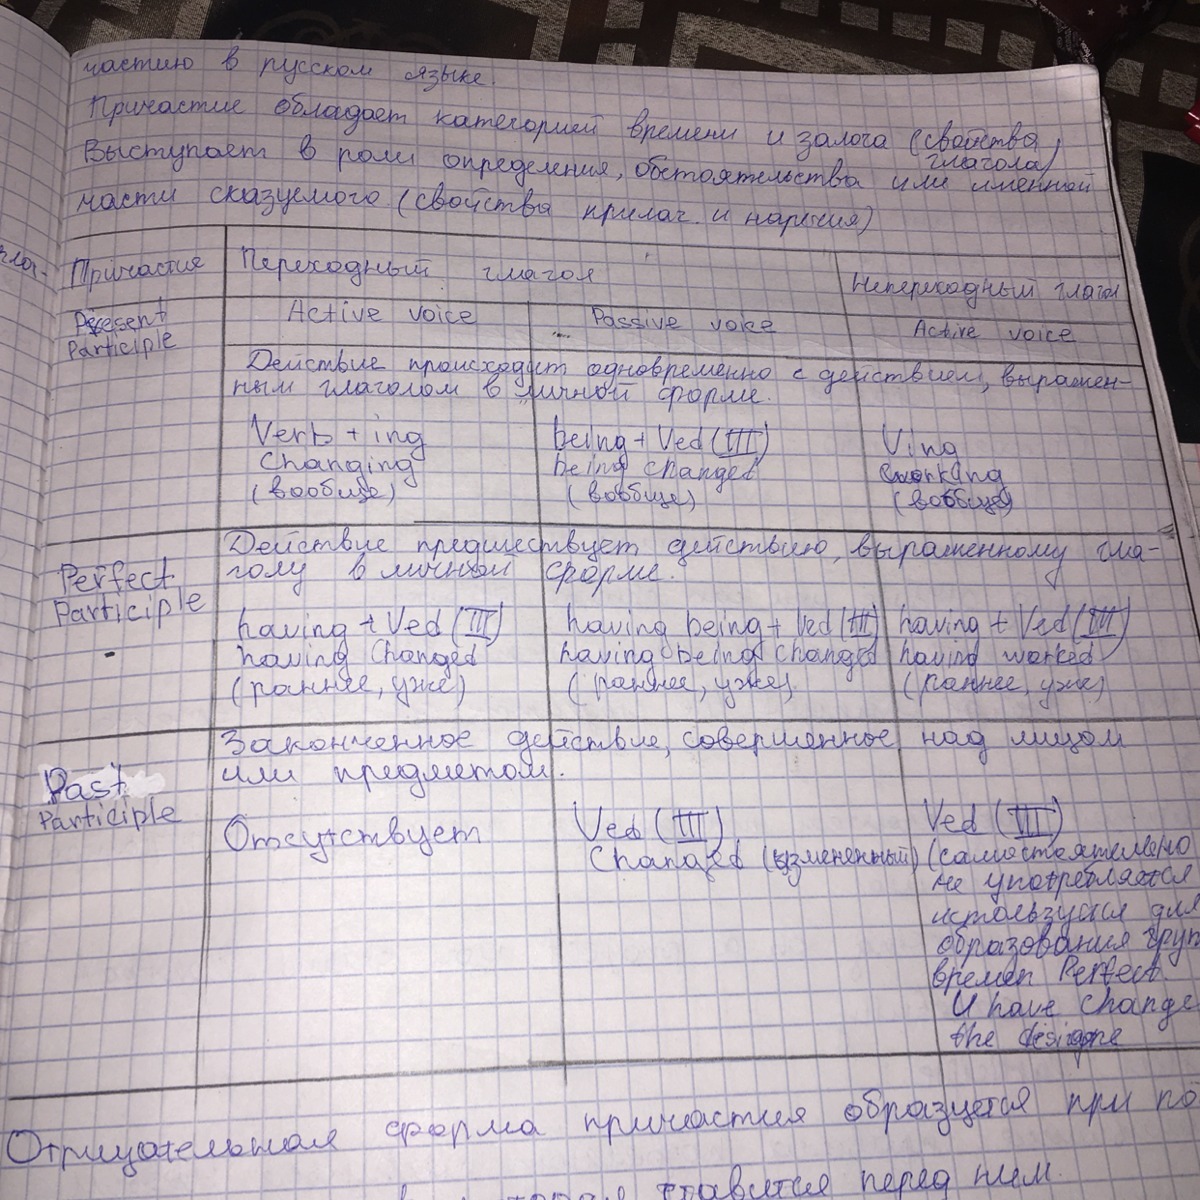 частию в русском языке.
Причастие обладает категорией времени и залога (свойства
глагола)
Выступает в роли определения, обстоятельства или именной
части сказуемого (свойства прилаг. и наречия)
Причастия
Переходный глагол
Непереходный глагол
Present
Participle
Active voice
Passive voice
Active voice
Действие происходит одновременно с действием, выражен-
ным глаголом в личной форме.
Verb + ing
changing
(вообще)
being + Ved (III)
being changed
(вообще)
Ving
working
(вообще)
Perfect
Participle
Действие предшествует действию, выраженному гла-
голу в личной форме.
having + Ved (III)
having changed
(раннее, уже)
having being + Ved (III)
having being changed
(раннее, уже)
having + Ved (III)
having worked
(раннее, уже)
Past
Participle
Законченное действие, совершенное над лицом
или предметом.
Отсутствует
Ved (III)
Changed (измененный)
Ved (III)
(самостоятельно
не употребляется
используется для
образования груп
времен Perfect
have change
the
Отрицательная форма причастия образуется при по
ставится перед ним.